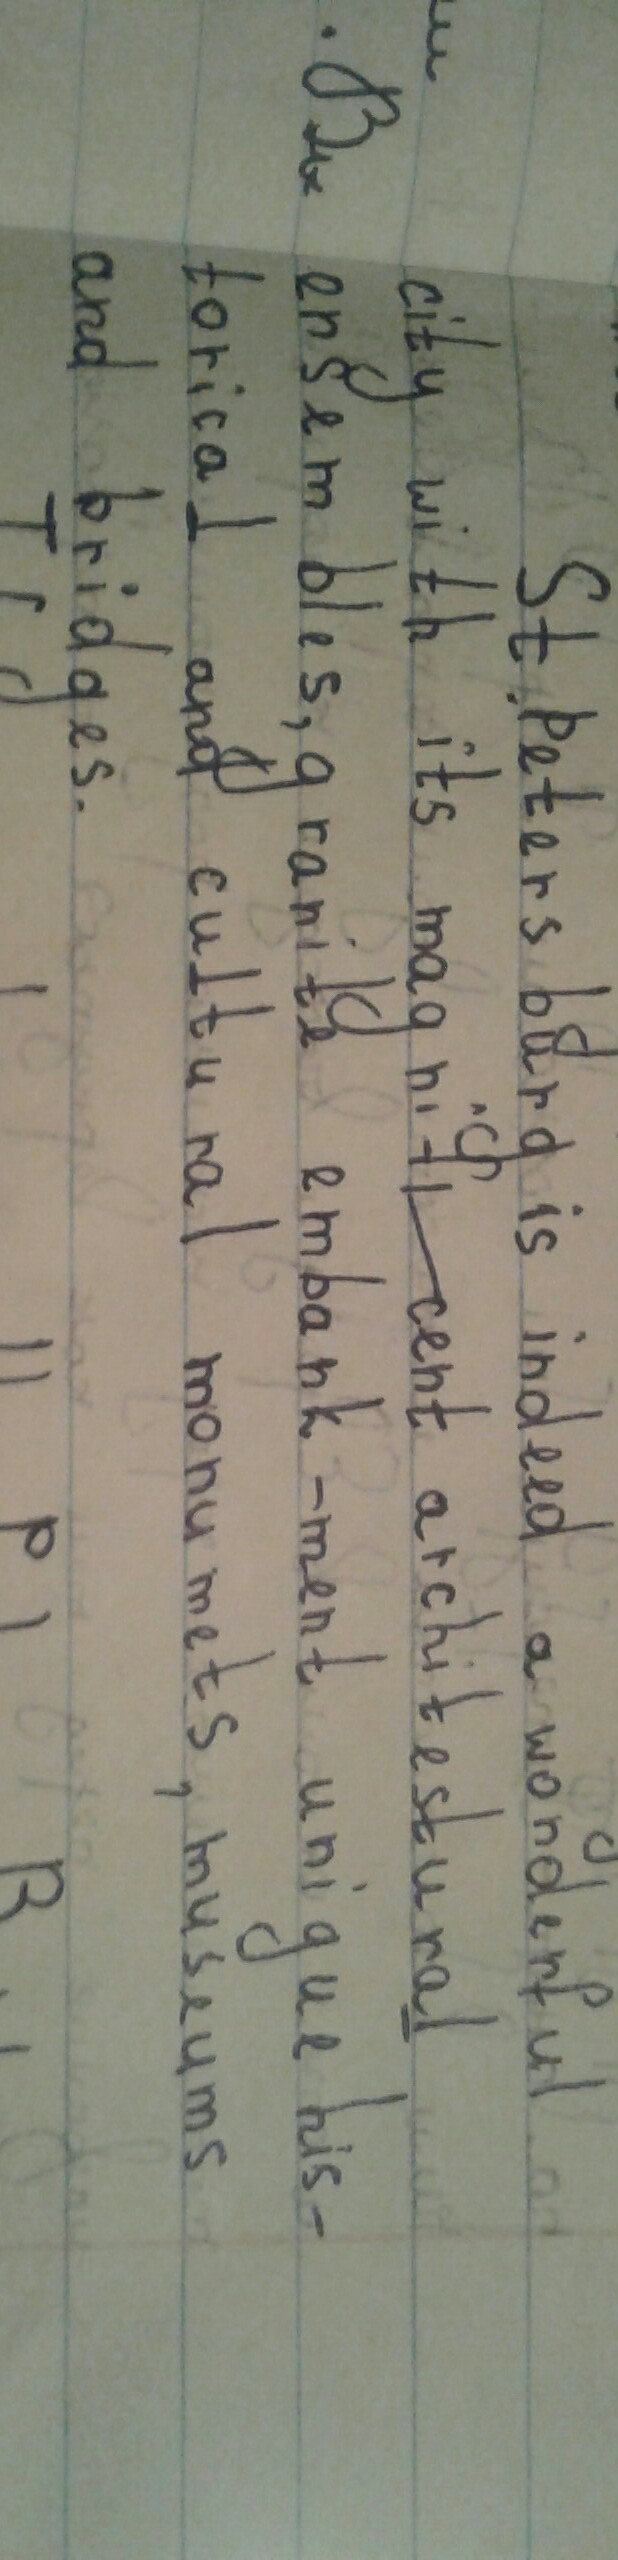 St. Petersburg is indeed a wonderful
city with its magnificent architestural
ensembles, granite embank-ment unique his-
torical and cultural monumets, museums
and bridges.